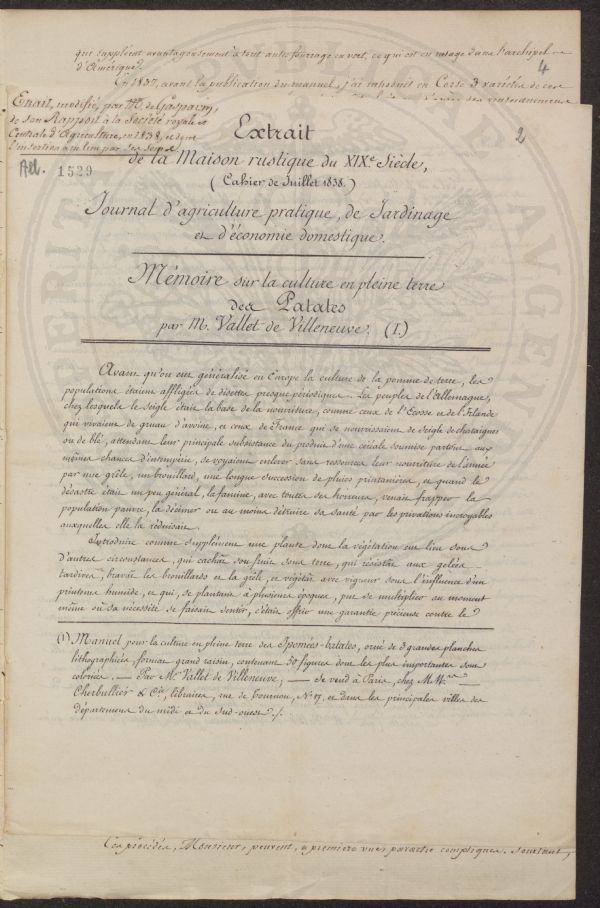 que suppléent avantageusement à tout autre fourrage en vert, ce qui est en usage dans l'archipel
d'Amérique.
4
En 1837, avant la publication du manuel, j'ai introduit en Corse 3 variétés de
Extrait, modifié, par Mr. de Gasparin,
de son Rapport à la Société royale et
Centrale d'Agriculture, en 1838, et dont
l'insertion a eu lieu par ses soins.
2
1529
Extrait
de la Maison rustique du XIXe Siècle,
(Cahier de Juillet 1838.)
Journal d'agriculture pratique, de Jardinage
et d'économie domestique.
Mémoire sur la culture en pleine terre
des Patates
par M. Vallet de Villeneuve. (1.)
Avant qu'on eut généralisé en Europe la culture de la pomme de terre, les
populations étaient affligées de disette presque périodique. Les peuples de l'Allemagne,
chez lesquels le seigle était la base de la nourriture, comme ceux de l'Ecosse et de l'Irlande
qui vivaient de gruau d'avoine, et ceux de France qui se nourrissaient de seigle de chataignes
ou de blé, attendant leur principale subsistance du produit d'une céréale soumise partout aux
mêmes chances d'intempérie, se voyaient enlever sans ressource leur nourriture de l'année
par une grêle, un brouillard, une longue succession de pluies printanières, et quand le
désastre était un peu général, la famine, avec toutes ses horreurs, venait frapper la
population pauvre, la décimer ou au moins détruire sa santé par les privations incroyables
auxquelles elle la réduisait.
Introduire comme supplément une plante dont la végétation eut lieu sous
d'autres circonstances, qui cachât son fruit sous terre, qui résistât aux gelées
tardives, bravât les brouillards et la grêle, et végétât avec vigueur sous l'influence d'un
printems humide, et qui, se plantant à plusieurs époques, put se multiplier au moment
même où sa nécessité se faisait sentir, c'était offrir une garantie précieuse contre le
(1) Manuel pour la culture en pleine terre des Ipomées-batates, orné de 3 grandes planches
lithographiées, format grand raisin, contenant 50 figures dont les plus importantes sont
coloriées, — Par Mr Vallet de Villeneuve; — Se vend à Paris, chez M.M.rs
Cherbullier & Cie, libraires, rue de Tournon, No 17, et dans les principales villes des
départemens du midi et du sud-ouest ./.
Ces procédés, Monsieur, peuvent, à première vue, paraître compliqués. Pourtant,